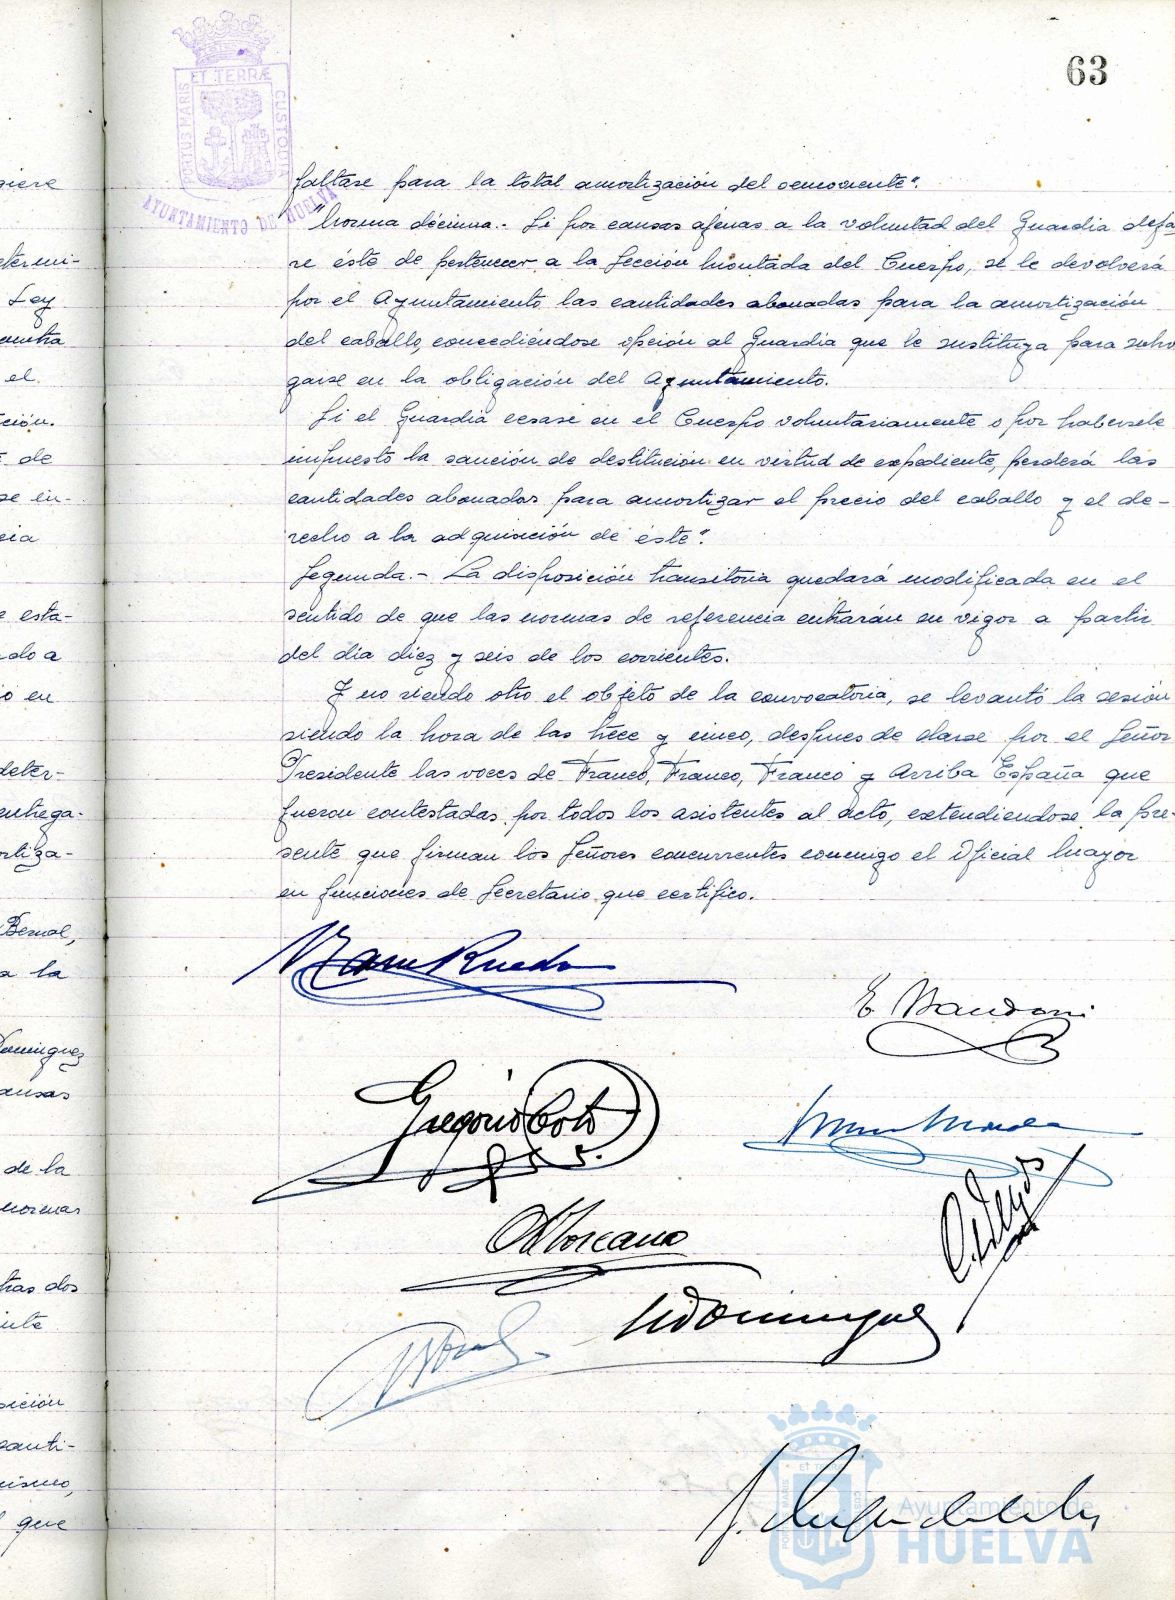 63
PORTUS MARIS ET TERRÆ CUSTODIA
AYUNTAMIENTO DE HUELVA
faltase para la total amortización del semoviente".
"Norma décima.- Si por causas ajenas a la voluntad del Guardia deja-
re éste de pertenecer a la Sección Montada del Cuerpo, se le devolverá
por el Ayuntamiento las cantidades abonadas para la amortización
del caballo, concediéndose opción al Guardia que le sustituya para subro
garse en la obligación del Ayuntamiento.
Si el Guardia cesase en el Cuerpo voluntariamente o por habersele
impuesto la sanción de destitución en virtud de expediente, perderá las
cantidades abonadas para amortizar el precio del caballo y el de-
recho a la adquisición de éste".
Segunda.- La disposición transitoria quedará modificada en el
sentido de que las normas de referencia entrarán en vigor a partir
del día diez y seis de los corrientes.
Y no siendo otro el objeto de la convocatoria, se levantó la sesión
siendo la hora de las trece y cinco, despues de darse por el Señor
Presidente las voces de Franco, Franco, Franco y Arriba España que
fueron contestadas por todos los asistentes al acto, extendiendose la pre-
sente que firman los Señores concurrentes conmigo el Oficial Mayor
en funciones de Secretario que certifico.
Rueda
E. Mandoni
Gregorio Coto
Moreano
Dominguez
Ayuntamiento de
HUELVA
giere
Ley
el
ción.
de
se in-
cia
esta-
do a
io en
deter-
entrega-
ortiza-
Bernal,
a la
Dominguez
ausas
de la
normas
tras dos
sición
canti-
mismo,
que